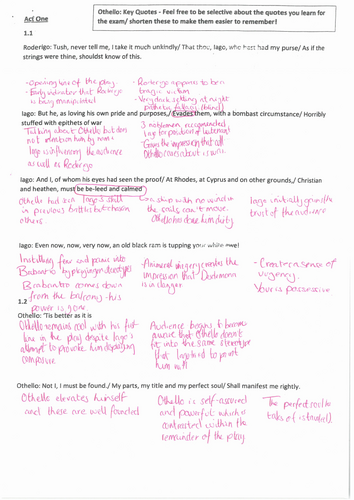 Othello: Key Quotes - Feel free to be selective about the quotes you learn for
the exam/ shorten these to make them easier to remember!
Act One
1.1
Roderigo: Tush, never tell me, I take it much unkindly/ That thou, Iago, who hast had my purse/ As if the
strings were thine, shouldst know of this.
-Opening lines of the play
-Early indicator that Roderigo
is being manipulated
-Roderigo appears to be a
tragic victim
-Very dark setting at night
pathetic fallacy
Iago: But he, as loving his own pride and purposes,/ Evades them, with a bombast circumstance/ Horribly
stuffed with epithets of war
Talking about Othello but does
not mention him by name
Iago is influencing the audience
as well as Roderigo
3 noblemen recommended
for position of lieutenant
Gives the impression that all
Othello cares about is war
Iago: And I, of whom his eyes had seen the proof/ At Rhodes, at Cyprus and other grounds,/ Christian
and heathen, must be be-leed and calmed
Othello had seen Iago's skill
in previous battles but chosen
others
Can ship with no wind in
the sails can't move.
Othello has done him dirty
Iago initially gains the
trust of the audience
Iago: Even now, now, very now, an old black ram is tupping your white ewe!
Instilling fear and panic into
Brabantio by playing on stereotypes
Brabantio comes down
from the balcony - his
power is gone
-Animal imagery creates the
impression that Desdemona
is in danger
-Creates a sense of
urgency.
Your is possessive
1.2
Othello: 'Tis better as it is
Othello remains cool with his first
line in the play despite Iago's
attempt to provoke him displaying
composure
Audience begins to become
aware that Othello doesn't
fit into the same stereotype
that Iago had to paint
him with
Othello: Not I, I must be found,/ My parts, my title and my perfect soul/ Shall manifest me rightly.
Othello elevates himself
and these are well founded
Othello is self-assured
and powerful which is
contrasted within the
remainder of the play
The perfect soul is